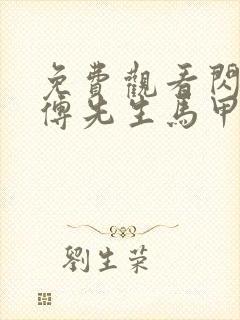 免費觀看閃
傅先生馬甲
劉生榮